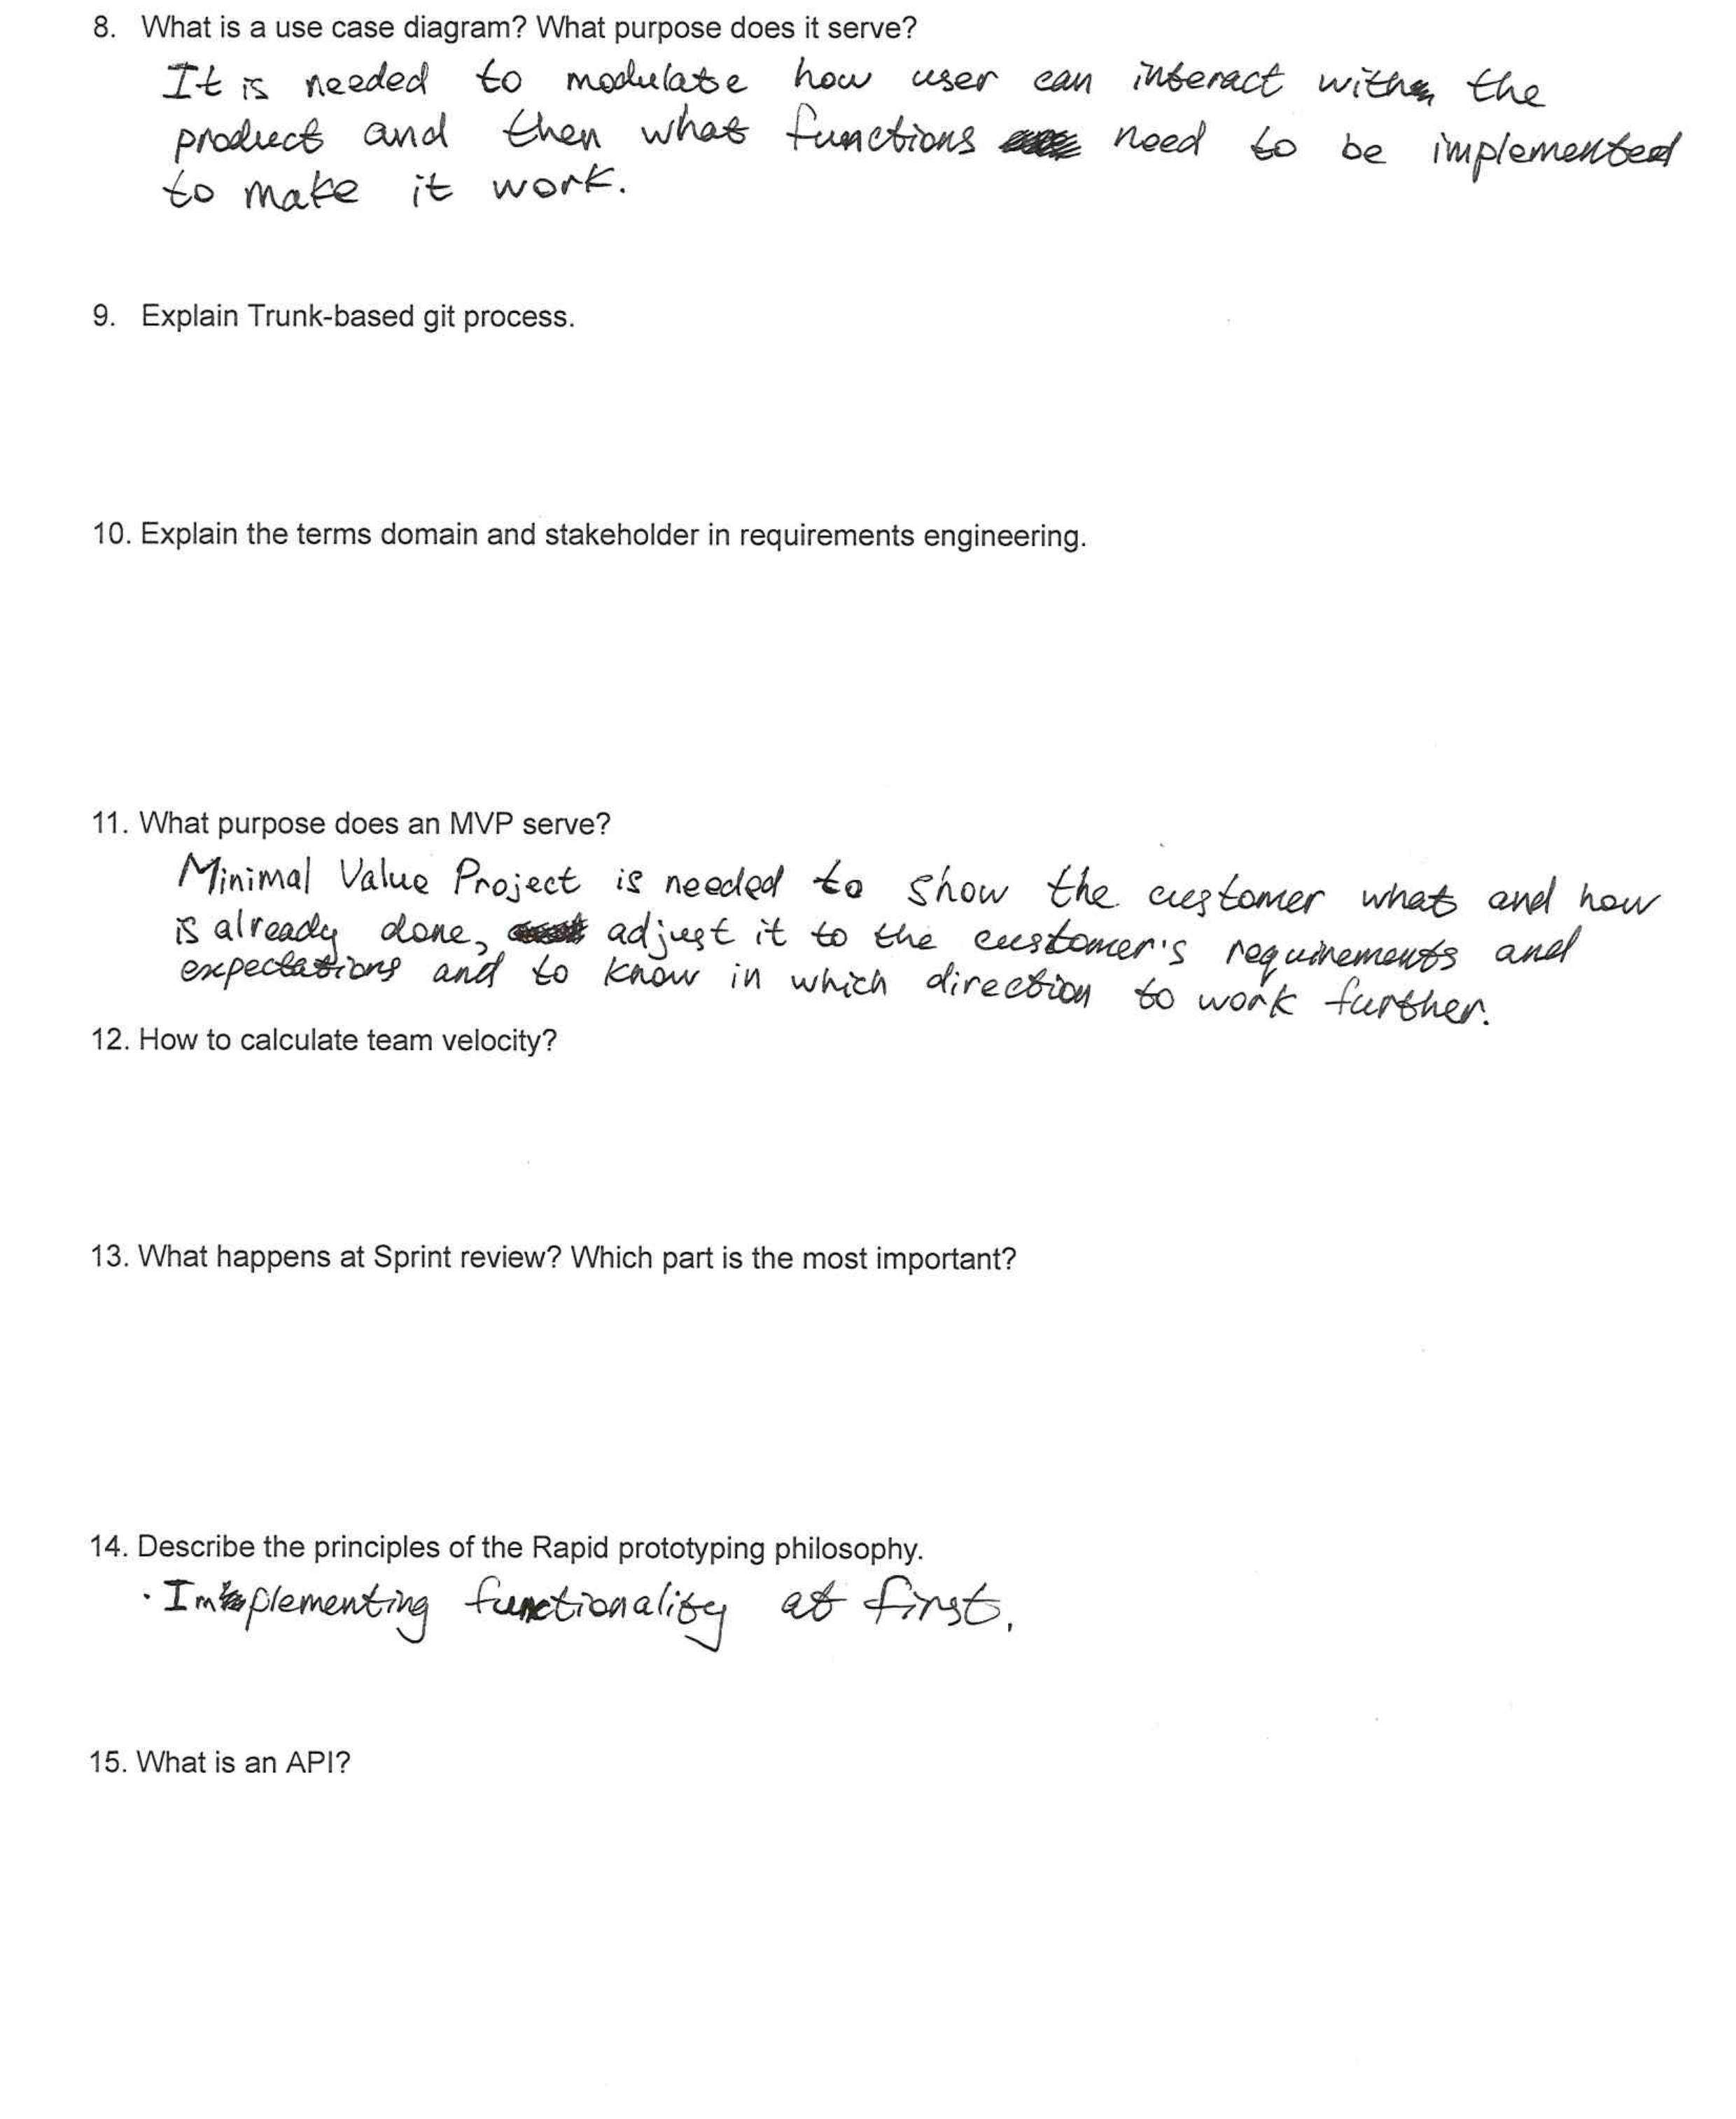 8. What is a use case diagram? What purpose does it serve?
It is needed to modulate how user can interact with the
product and then what functions need to be implemented
to make it work.
9. Explain Trunk-based git process.
10. Explain the terms domain and stakeholder in requirements engineering.
11. What purpose does an MVP serve?
Minimal Value Project is needed to show the customer what and how
is already done, adjust it to the customer's requirements and
expectations and to know in which direction to work further.
12. How to calculate team velocity?
13. What happens at Sprint review? Which part is the most important?
14. Describe the principles of the Rapid prototyping philosophy.
· Implementing functionality at first.
15. What is an API?